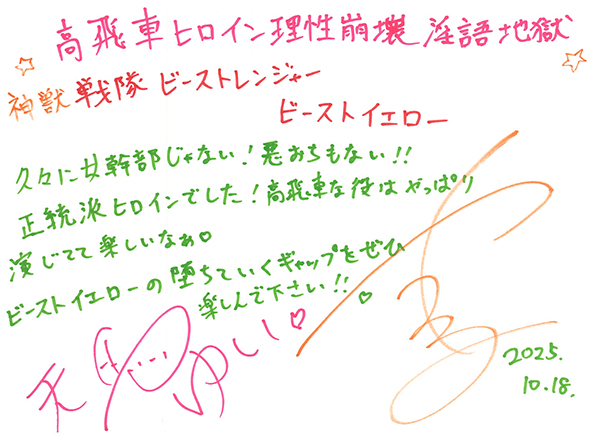 高飛車ヒロイン理性崩壊 淫語地獄
神獣戦隊 ビーストレンジャー
ビーストイエロー
久々に女幹部じゃない!悪おちもない!!
正統派ヒロインでした!高飛車な役はやっぱり
演じてて楽しいなぁ♡
ビーストイエローの堕ちていくギャップをぜひ
楽しんで下さい!!♡
2025.
10.18.